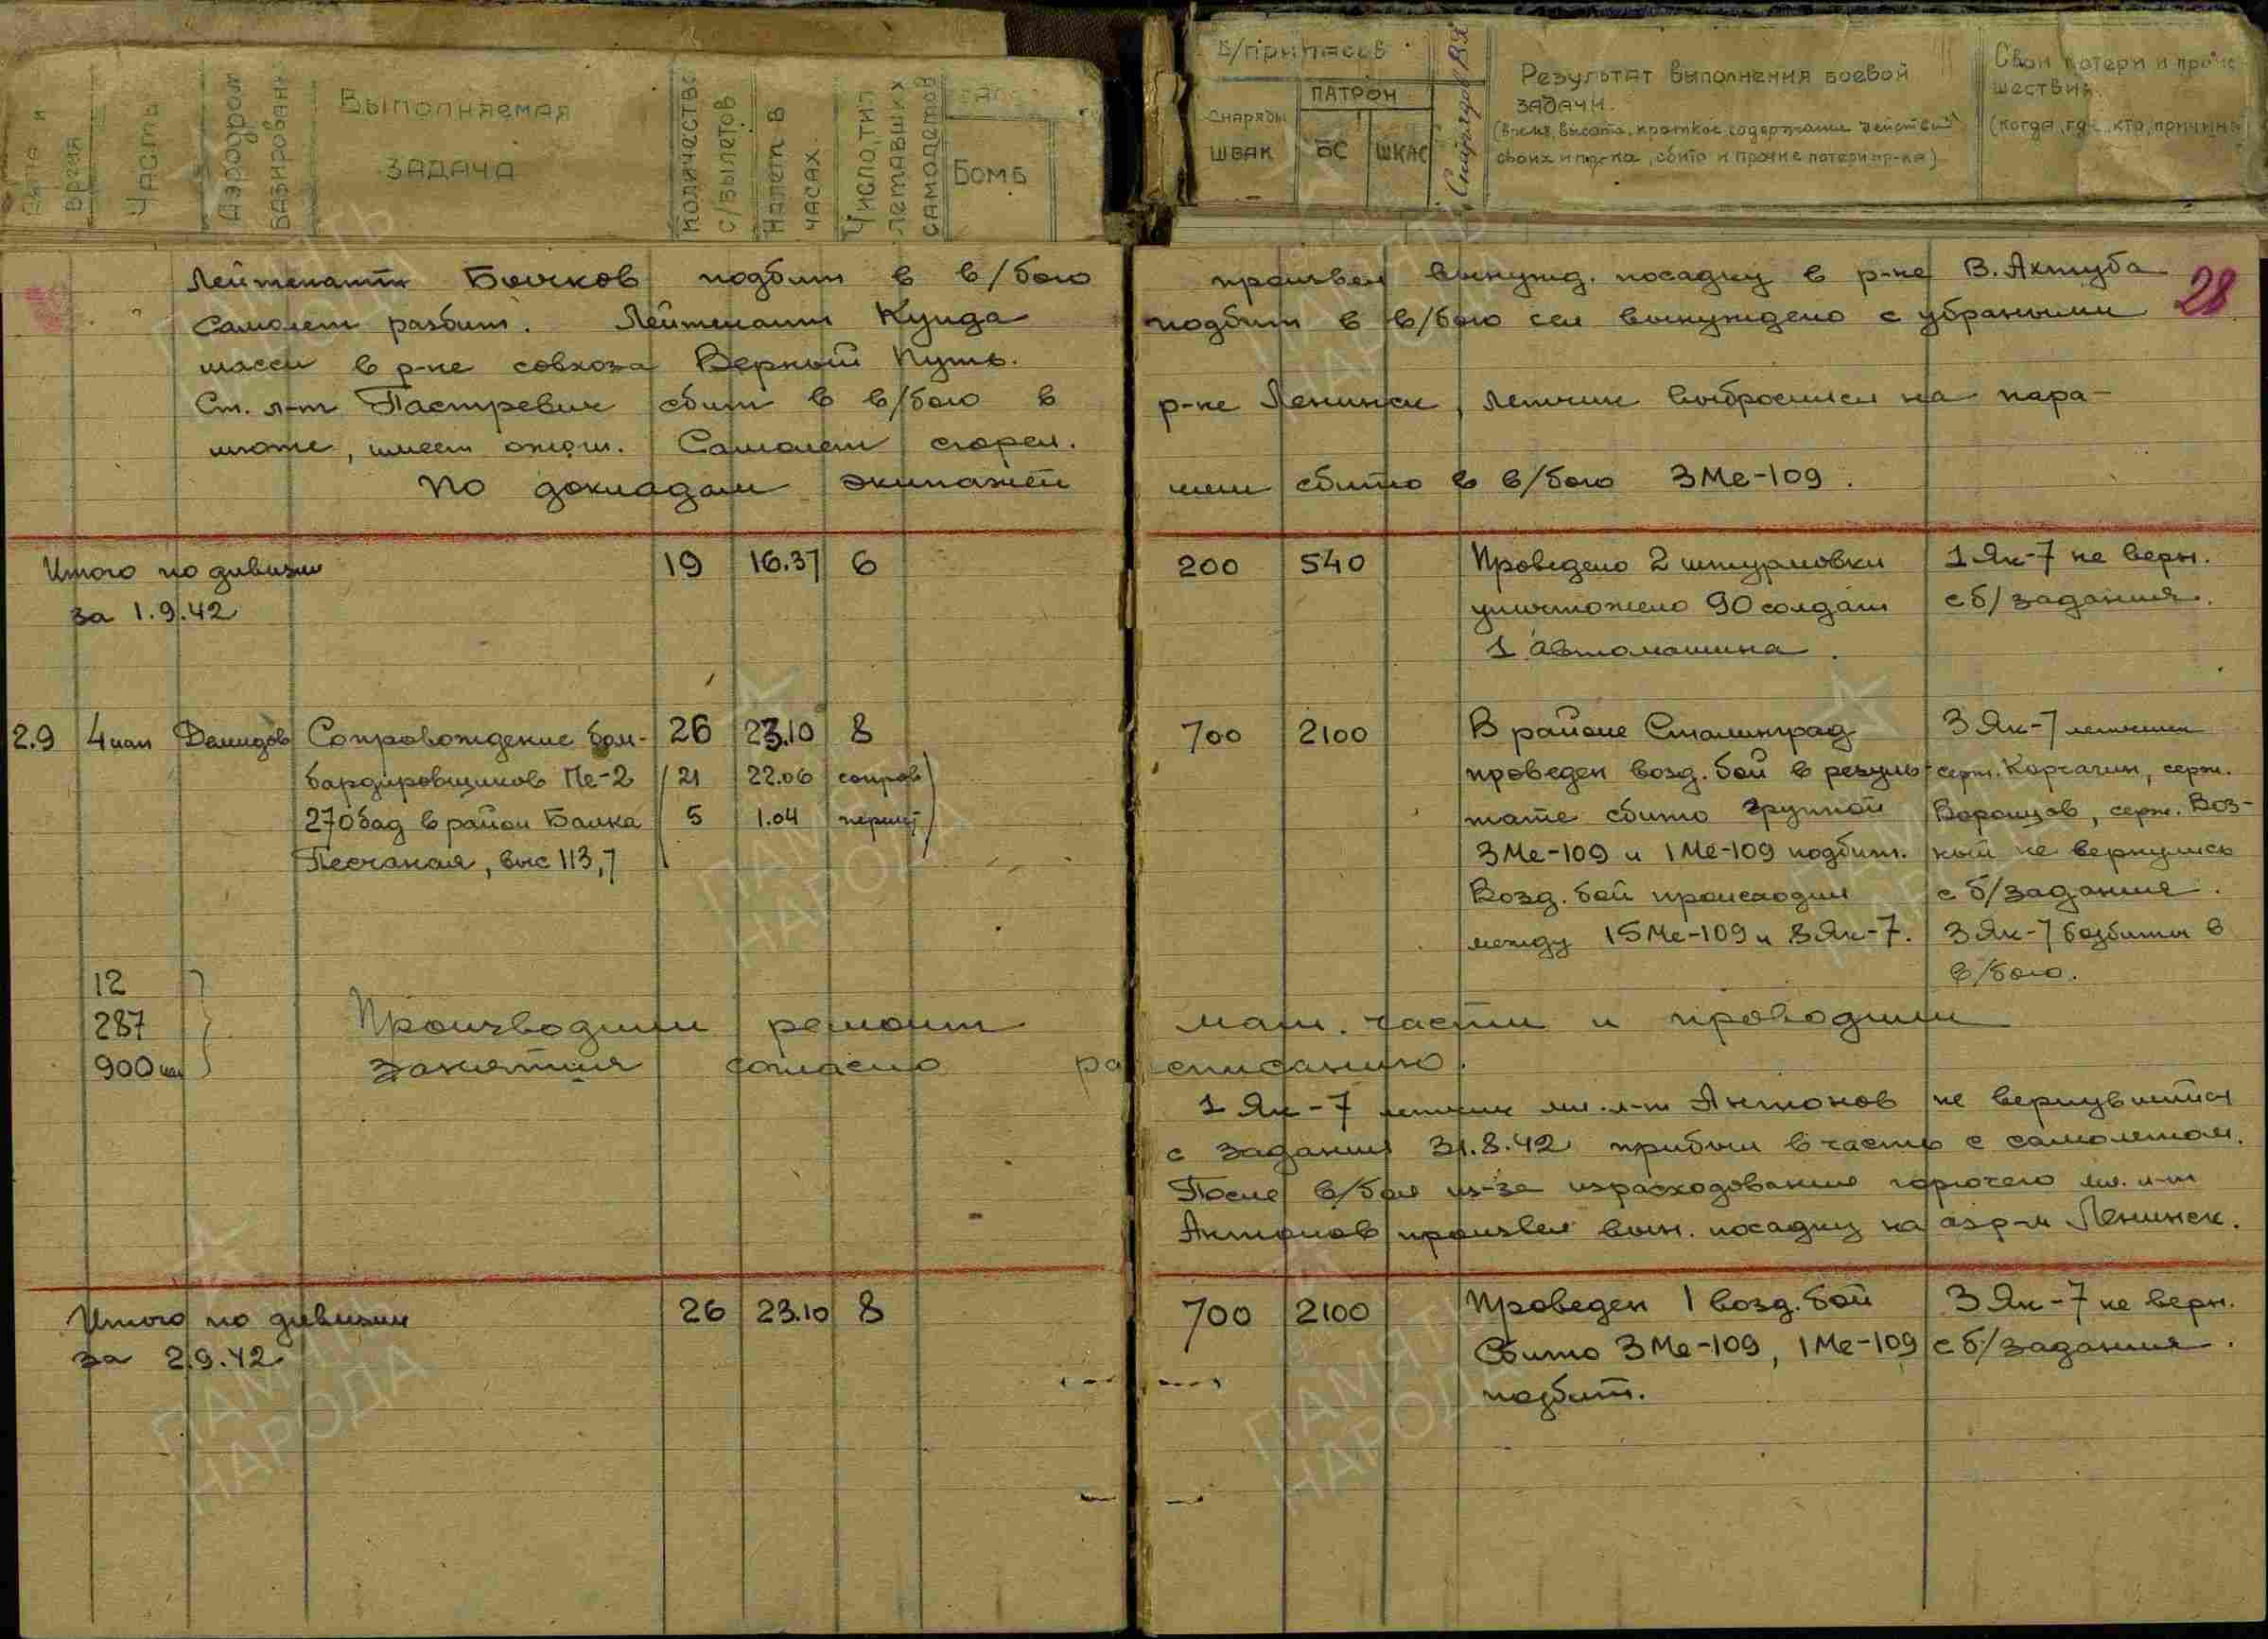 Дата и время
Часть
Аэродром базирования
Выполняемая задача
Количество с/вылетов
Налет в часах.
Число, тип летавших самолетов
Бомб
Б/припасов
Снаряды ШВАК
ПАТРОН
БС
ШКАС
Результат выполнения боевой
задачи.
(Время, высота, краткое содержание действий
своих и пр-ка, сбито и прочие потери пр-ка)
Свои потери и проис-
шествия.
(когда, где, кто, причины)
28
Лейтенант Бычков подбит в в/бою произвел вынужд. посадку в р-не В. Ахтуба
Самолет разбит. Лейтенант Кунда подбит в в/бою сел вынуждено с убраными
шасси в р-не совхоза Верный Путь.
Ст. л-т Пастревич сбит в в/бою в р-не Ленинск, летчик выбросился на пара-
шюте, имеет ожоги. Самолет сгорел.
По докладам экипажей ими сбито в в/бою 3 Ме-109.
Итого по дивизии 19 16.37 6 200 540 Проведено 2 штурмовки 1 Як-7 не верн.
за 1.9.42 уничтожено 90 солдат с б/задания.
1 автомашина.
2.9 4 иап Демидов Сопровождение бом- 26 23.10 8 700 2100 В районе Сталинград 3 Як-7 летчики
бардировщиков Пе-2 (21 22.06 сопров) проведен возд. бой в резуль- серж. Корчагин, серж.
270 бад в район Балка 5 1.04 перелет тате сбито группой Воронцов, серж. Воз-
Песчаная, выс 113,7 3 Ме-109 и 1 Ме-109 подбит. ный не вернулись
Возд. бой происходил с б/задания.
между 15 Ме-109 и 8 Як-7. 3 Як-7 подбиты в
в/бою.
12
287 Производили ремонт мат. части и проводили
900 иап занятия согласно расписанию.
1 Як-7 летчик мл. л-т Антонов не вернувшийся
с задания 31.8.42 прибыл в часть с самолетом.
После в/боя из-за израсходования горючего мл. л-т
Антонов произвел вын. посадку на аэр-м Ленинск.
Итого по дивизии 26 23.10 8 700 2100 Проведен 1 возд. бой 3 Як-7 не верн.
за 2.9.42 Сбито 3 Ме-109, 1 Ме-109 с б/задания.
подбит.
ПАМЯТЬ
НАРОДА